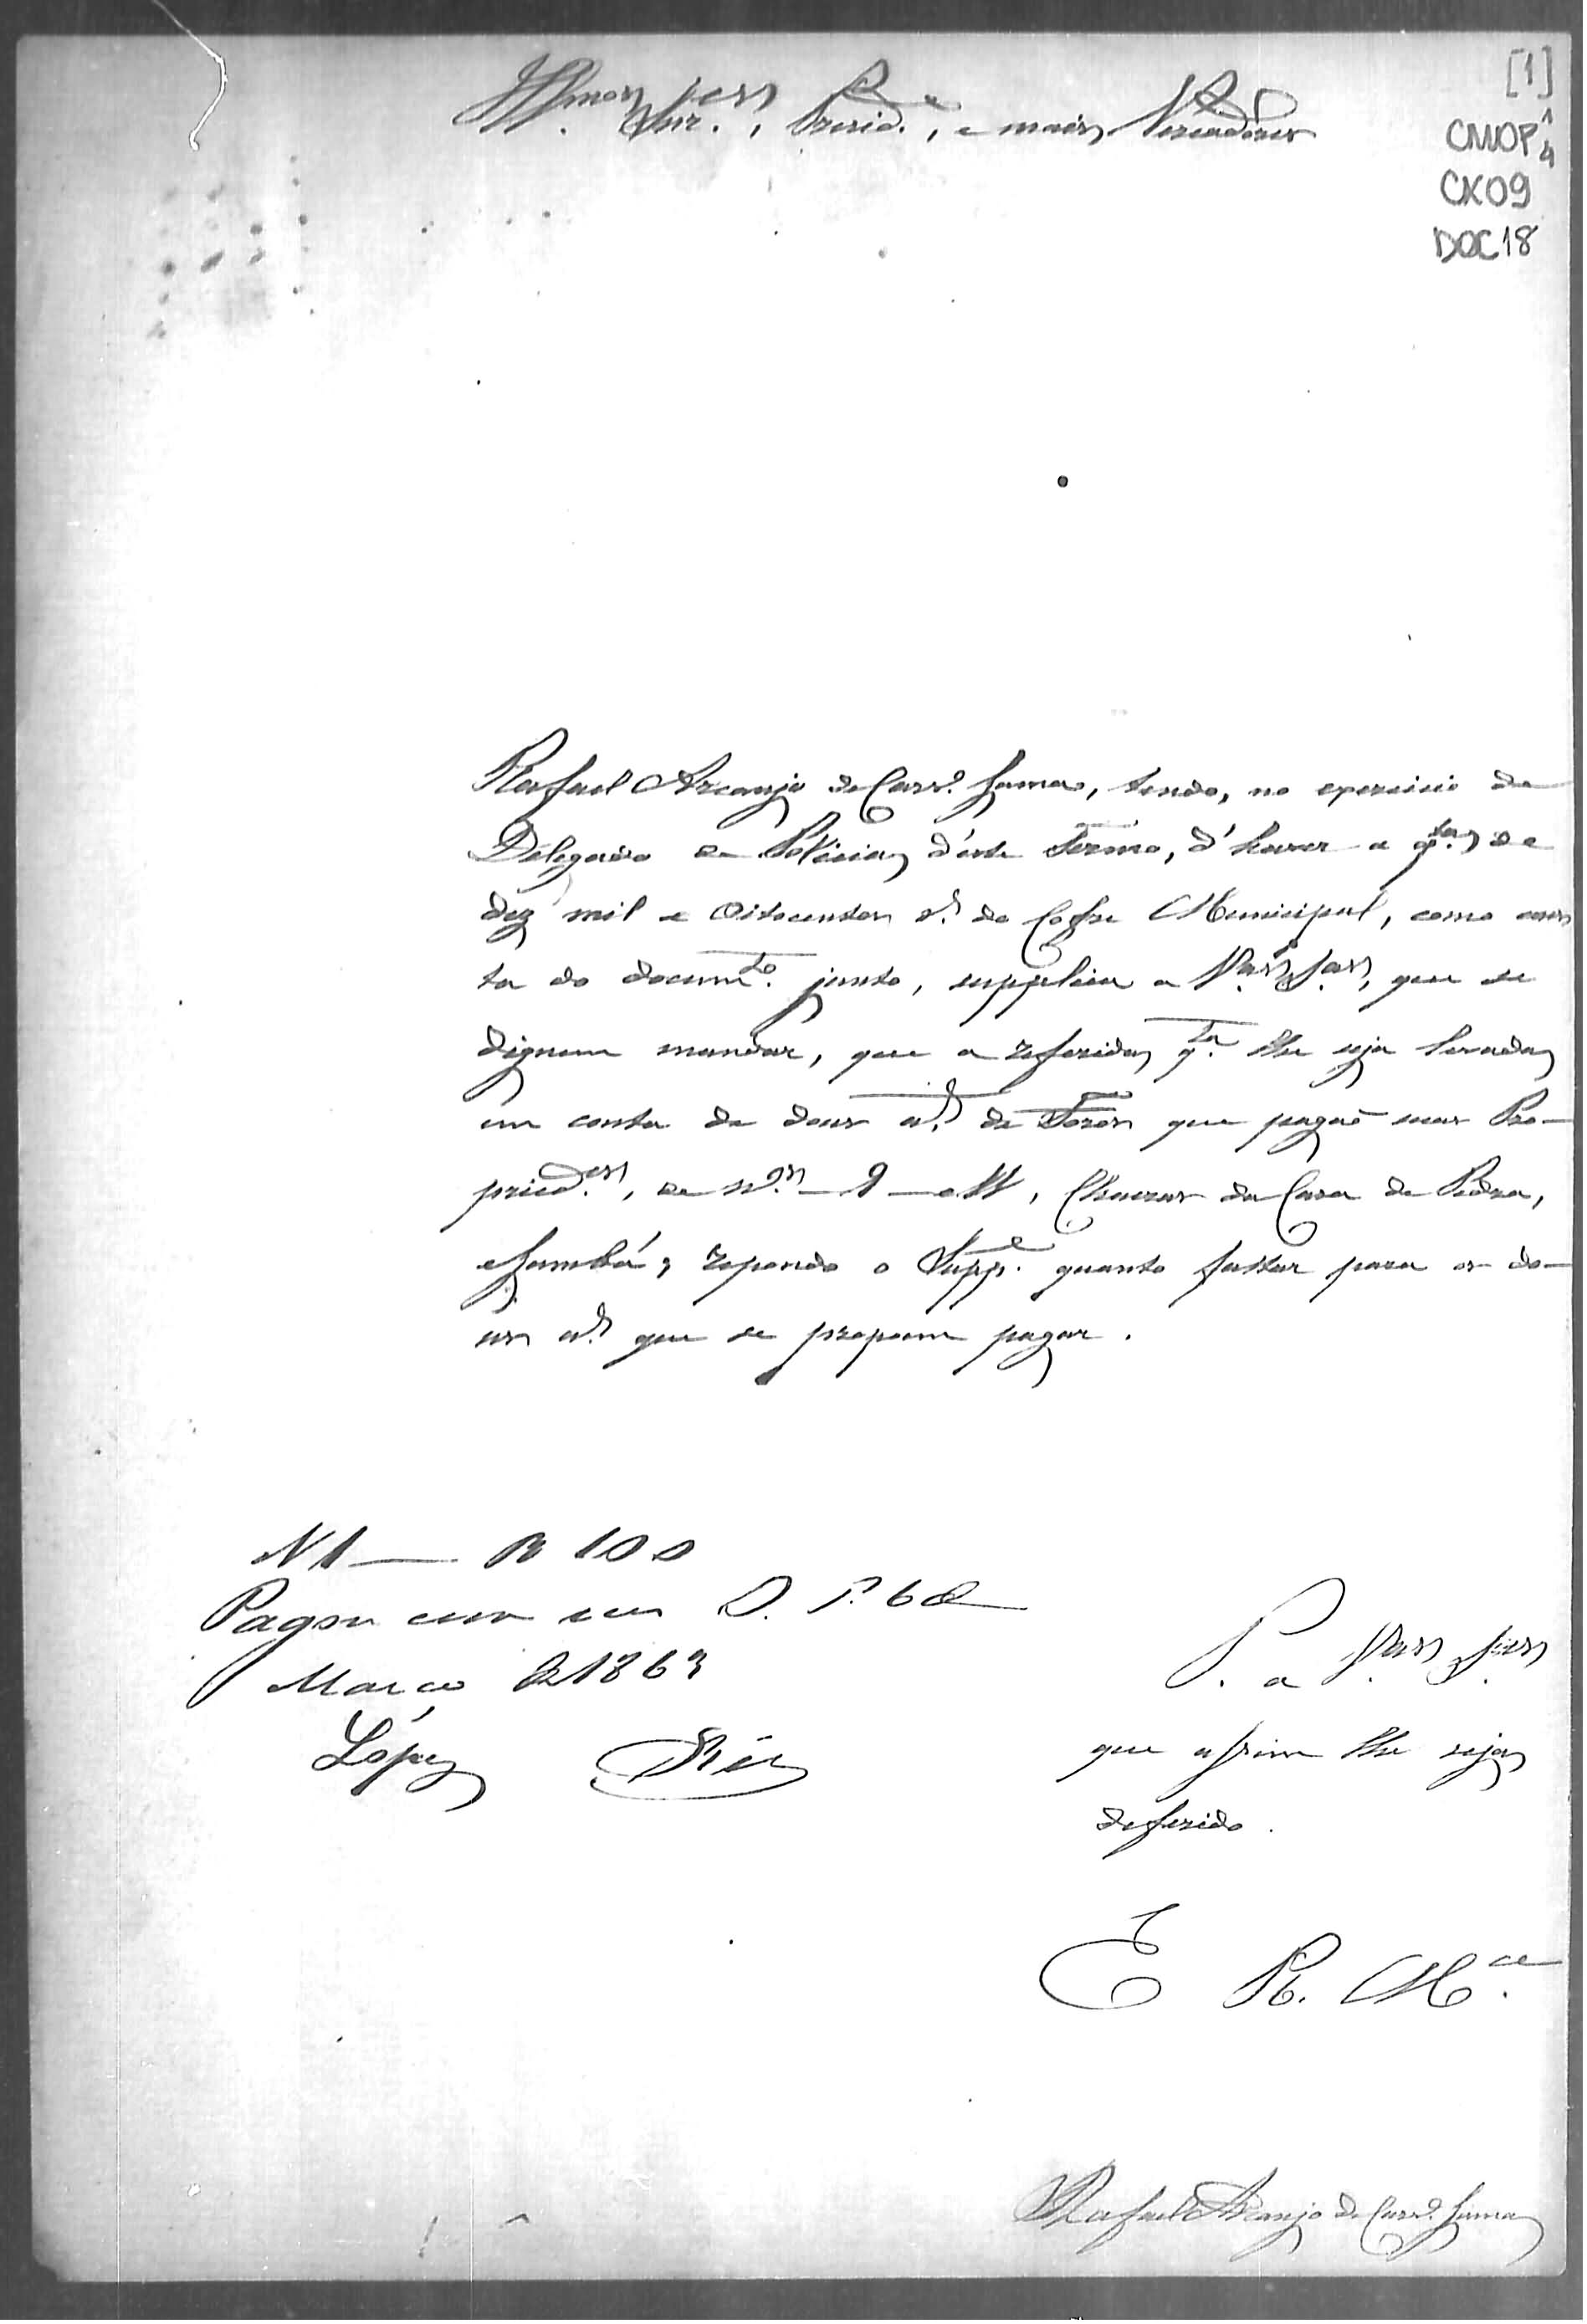 Illmos Snres. Presid.e, e mais Vereadores
[1]
CMOP
CX09
DOC18
Rafael Arcanjo de Carv.o Gama, tendo, no exercicio de
Delegado de Policia d'este Termo, d'haver a q.tia de
dez mil e Oitocentos r.s do Cofre Municipal, como cons
ta do docum.to junto, supplica a V.as S.as, que se
dignem mandar, que a referida q.tia lhe seja levada
em conta de dous a.s de Foros que pagaõ suas Pro-
pried.es, de N.os 9 e 11, Chacras da Casa de Pedra,
e repondo o Supp.e quanto faltar para os do-
us a.s que se propoem pagar.
N 1 — R 100
Pagou cem reis O. P.
Março 2 1863
Lopes Reis
P. a V.as S.as
que assim lhe seja
deferido.
E R. M.ce
Rafael Arcanjo de Carv.o Gama